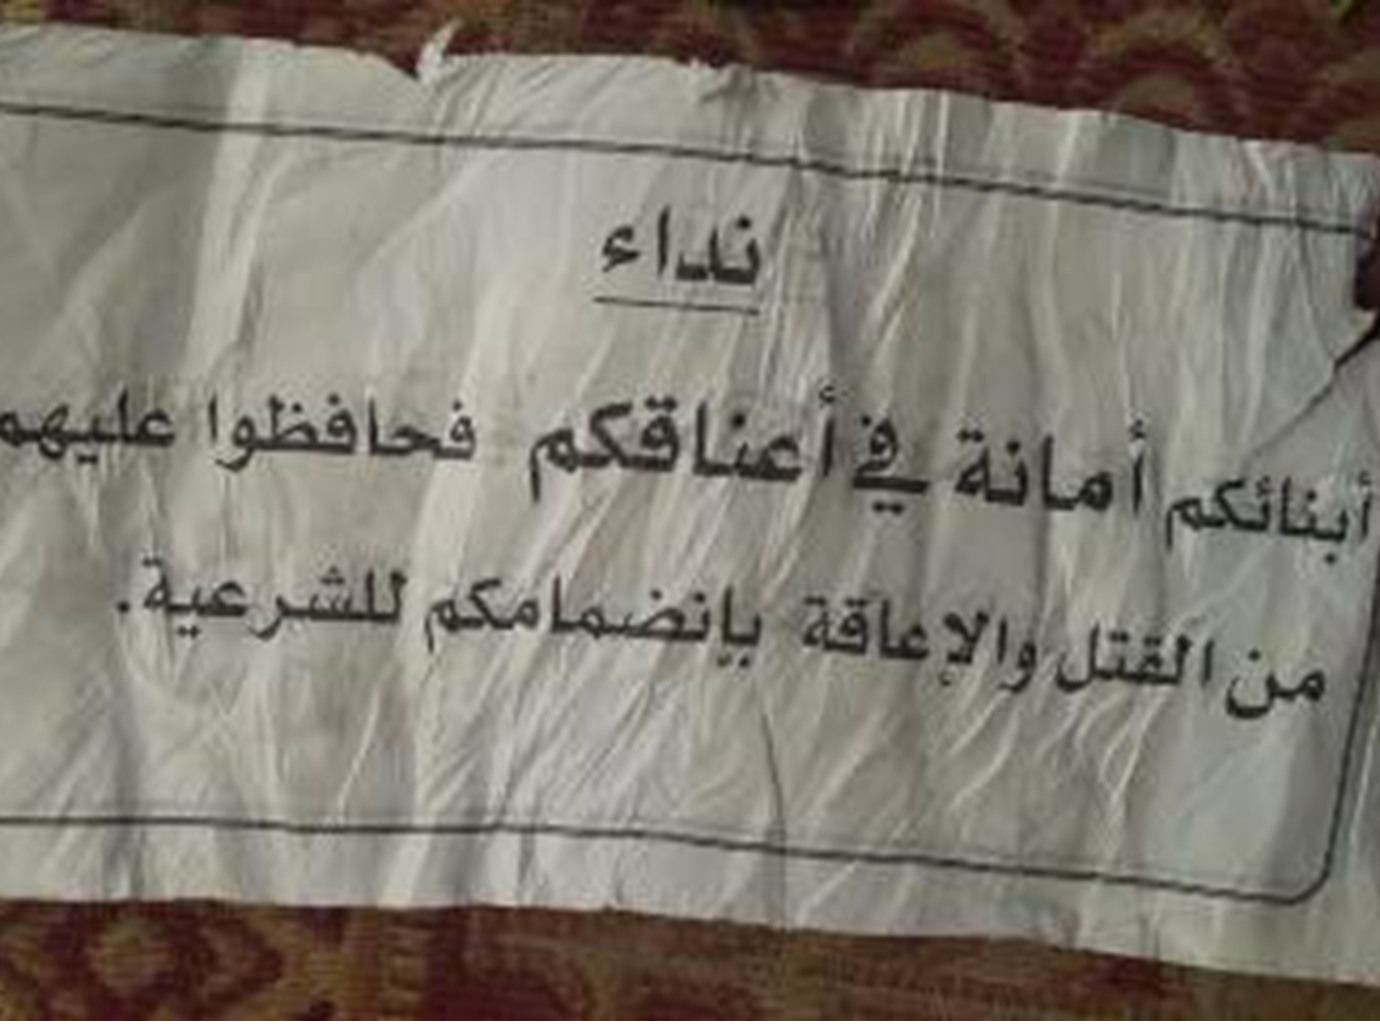 نداء
أبنائكم أمانة في أعناقكم فحافظوا عليهم
من القتل والإعاقة بإنضمامكم للشرعية.